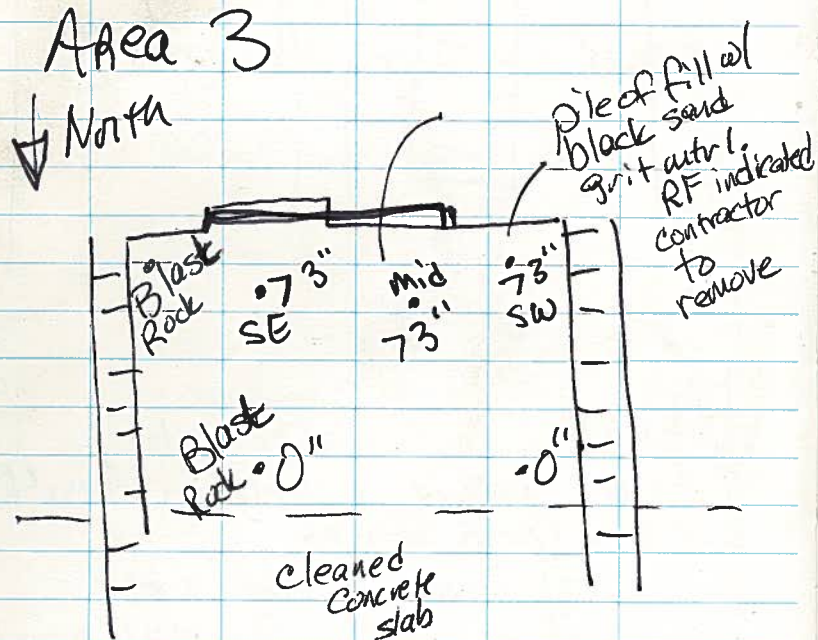 Area 3
North
pile of fill w/
black sand
grit mtrl.
RF indicated
contractor
to
remove
Blast
Rock
73"
SE
mid
73"
73"
SW
Blast
Rock
0"
0"
cleaned
concrete
slab